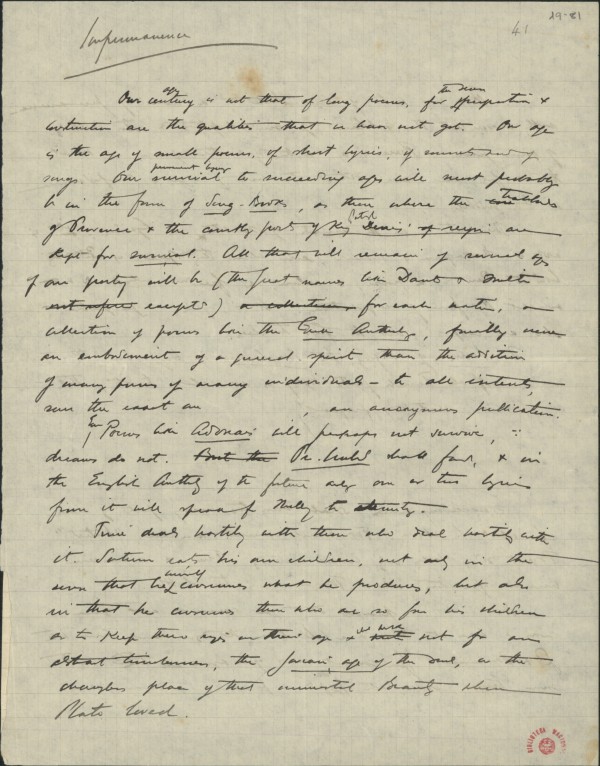 Impermanence
41
29-81
Our age is not that of long poems, for the sense of proportion &
construction are the qualities that we have not got. Our age
is the age of small poems, of short lyrics, of sonnets and of
songs. Our survival to succeeding ages will most probably
be in the form of Song-Books, as those where the
of Provence & the courtly poets of King are
kept for survival. All that will remain of several ages
of our poetry will be (the great names like Dante &
excepted) for each nation, a
collection of poems like the Greek Anthology,
an embodiment of a general spirit than the addition
of many poems of many individuals – to all intents,
an anonymous publication.
Poems like Adonais will perhaps not survive, ∵
dreams do not. shall fail, & in
the English Anthology of the future only one or two lyrics
from it will speak of Shelley to eternity.
Time deals hostilely with those who deal hostilely with
it. Saturn eats his own children, not only in the
sense that he consumes what he produces, but also
in that he consumes those who are so far his children
as to keep their eyes on their age & not for an
timelessness, the age of the soul, or the
changeless place of that immortal Beauty whom
Plato loved.
BIBLIOTECA NACIONAL